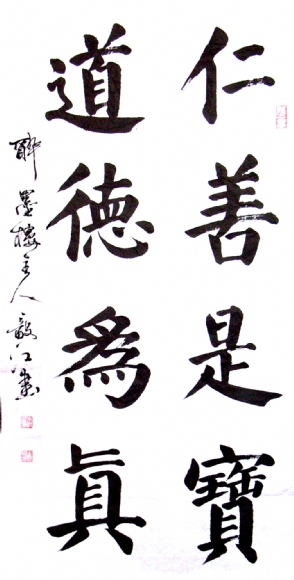 仁善是寶
道德為真
聊墨樓主人毅江書